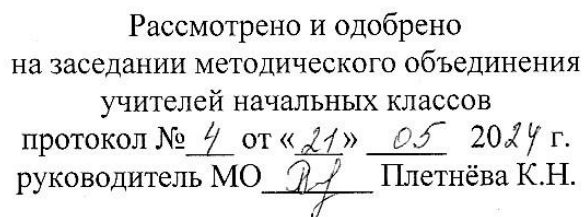 Рассмотрено и одобрено
на заседании методического объединения
учителей начальных классов
протокол № 4 от «21» 05 2024 г.
руководитель МО Плетнёва К.Н.